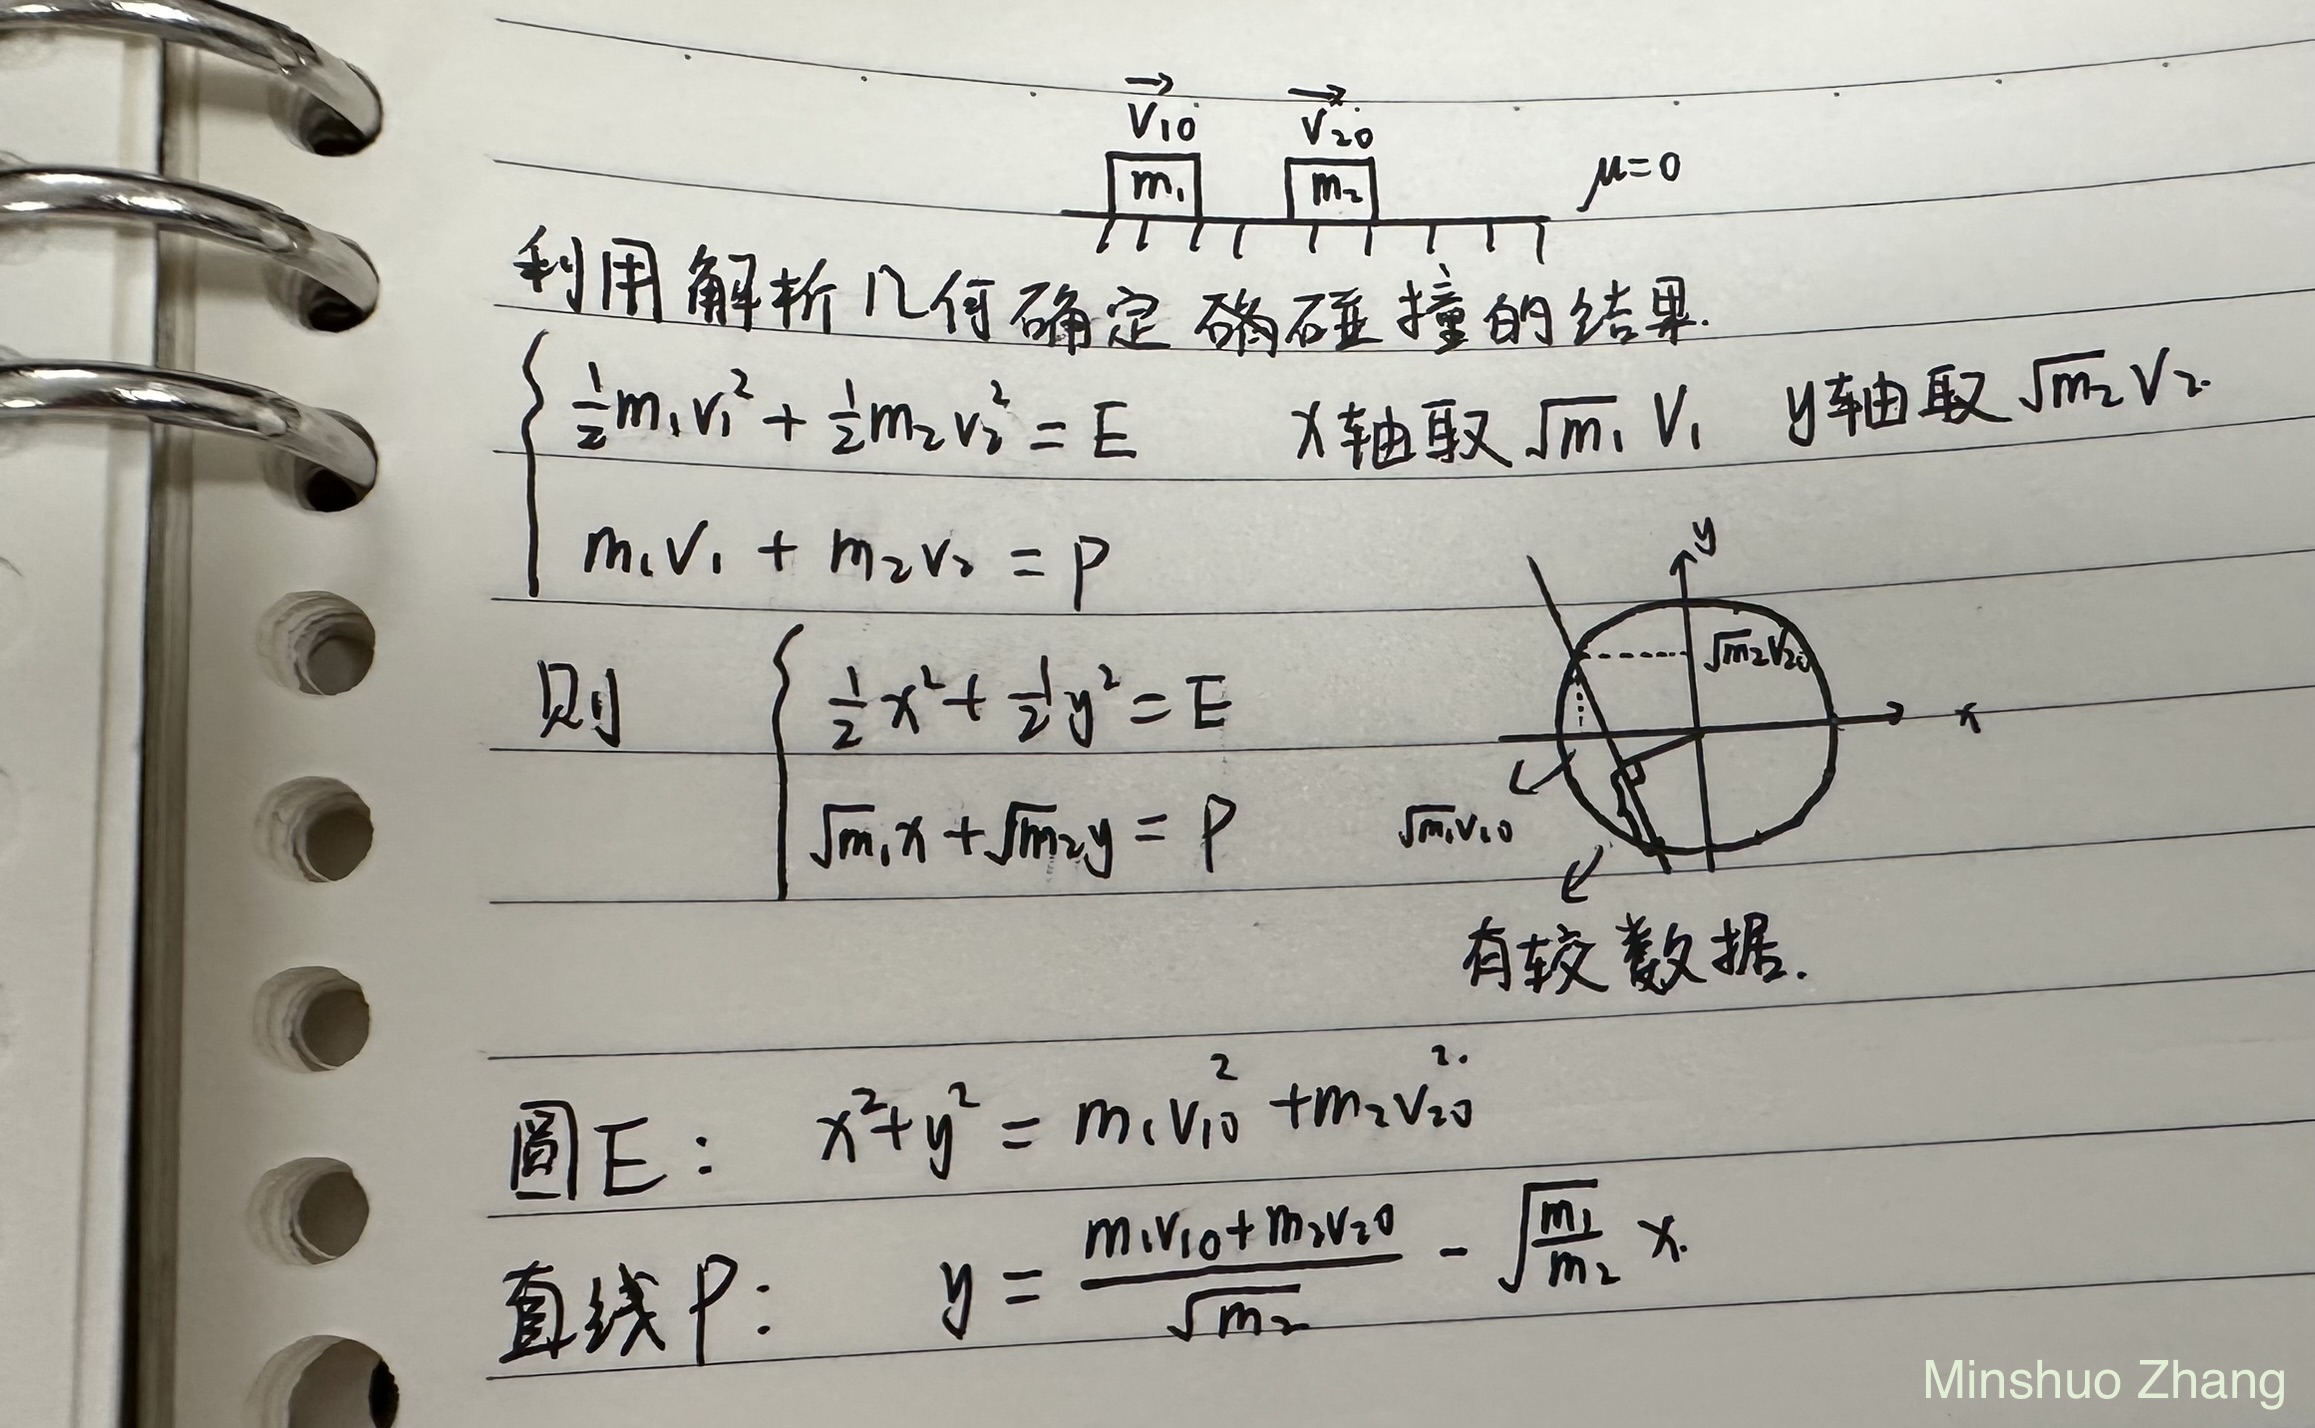 V₁₀ V₂₀
m₁ m₂ μ=0
利用解析几何确定碰撞的结果.
½m₁v₁² + ½m₂v₂² = E x轴取√m₁ V₁ y轴取√m₂ V₂.
m₁v₁ + m₂v₂ = P
y
√m₂V₂₀
则 ½x² + ½y² = E
x
√m₁x + √m₂y = P
√m₁v₁₀
有较数据.
圆E: x²+y² = m₁v₁₀² + m₂v₂₀²
直线P: y = (m₁v₁₀+m₂v₂₀)/√m₂ - √(m₁/m₂) x.
Minshuo Zhang